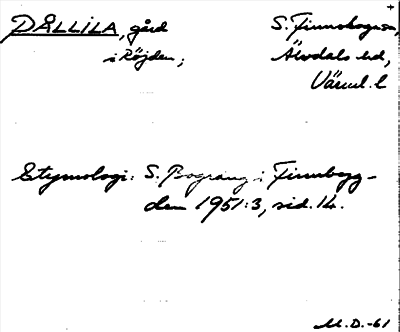 DÅLLILA, gård
i Röjden;
S. Finnskogarn,
Älvdals hd,
Värml. l
Etymologi: S. Bograng i Finnbygd-
den 1951:3, sid. 14.
M.D.-61